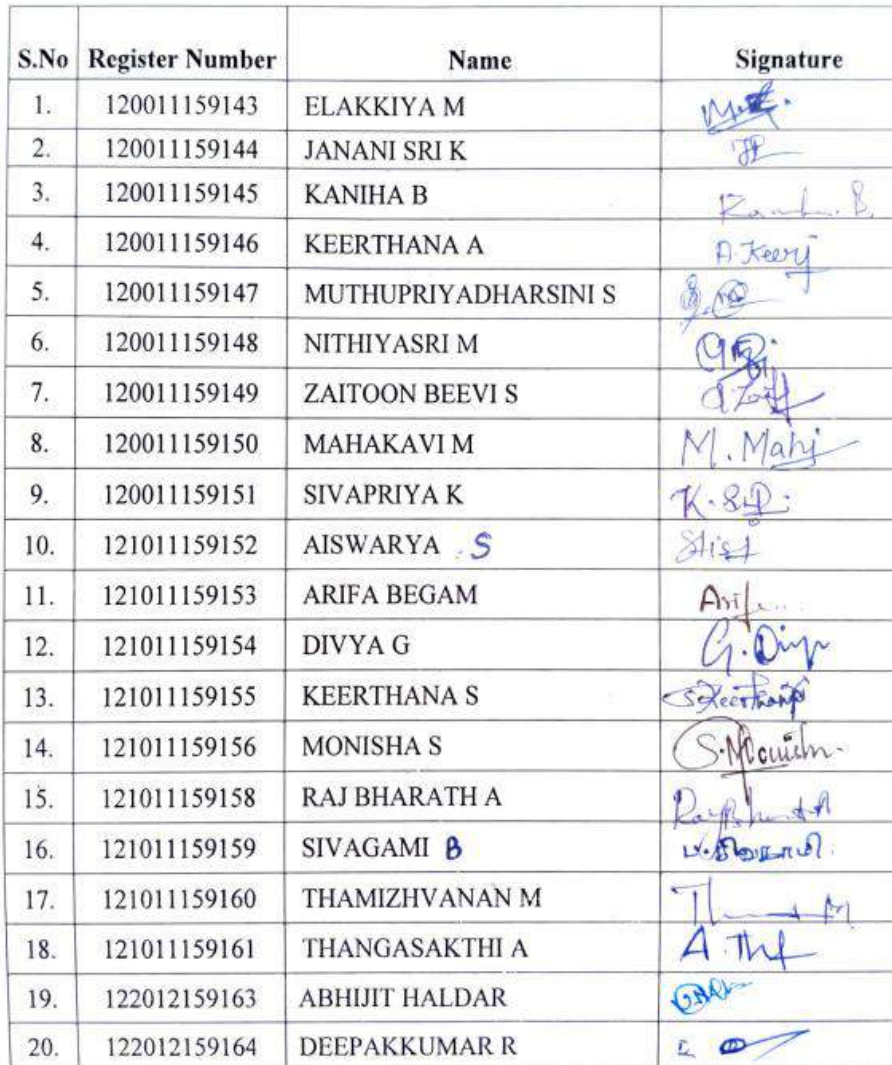 S.No Register Number Name Signature
1. 120011159143 ELAKKIYA M
2. 120011159144 JANANI SRI K
3. 120011159145 KANIHA B
4. 120011159146 KEERTHANA A A.Keerj
5. 120011159147 MUTHUPRIYADHARSINI S
6. 120011159148 NITHIYASRI M
7. 120011159149 ZAITOON BEEVI S
8. 120011159150 MAHAKAVI M M. Mahi
9. 120011159151 SIVAPRIYA K
10. 121011159152 AISWARYA S
11. 121011159153 ARIFA BEGAM
12. 121011159154 DIVYA G
13. 121011159155 KEERTHANA S S.Keerthana
14. 121011159156 MONISHA S
15. 121011159158 RAJ BHARATH A
16. 121011159159 SIVAGAMI B ப.சிவகாமி
17. 121011159160 THAMIZHVANAN M
18. 121011159161 THANGASAKTHI A
19. 122012159163 ABHIJIT HALDAR
20. 122012159164 DEEPAKKUMAR R